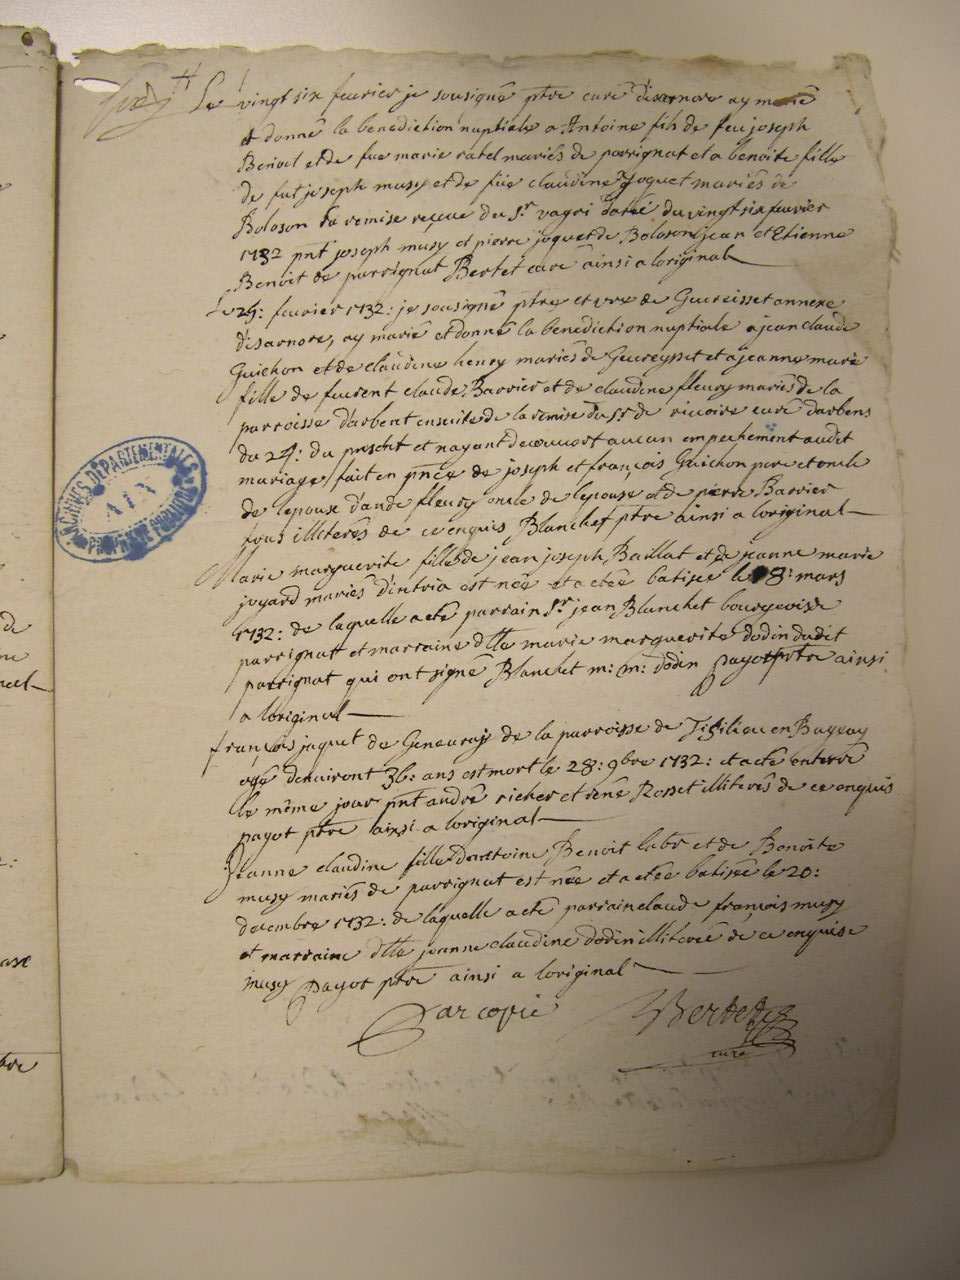 Le vingt six feuvrier je sousigné ptre curé disernore ay marié
et donné la benediction nuptiale a Antoine fils de feu joseph
Benoit et de fue marie ratel mariés de parrignat et a benoite fille
de fut joseph musy et de füe claudine Joquet mariés de
Boloson la remise reçeue du Sr vagri datté du vingt six feuvrier
1732 pnt joseph musy et pierre joquet de Boloson jean et Etienne
Benoit de parrignat Bertet curé ainsi a loriginal
Le 25: feuvrier 1732: je sousigné ptre et vre de Geureisset annexe
disarnore, ay marié et donné la benediction nuptiale a jean claude
Guichon et de claudine henry mariés de Geureysset et a jeanne marie
fille de fut claude Barrier et de claudine fleury mariés de la
parroisse d'arbent ensuite de la remise du Sr de rivoire curé darbens
du 24: du present et nayant decouvert aucun empechement audit
mariage, fait en pnce de joseph et françois Guichon pere et oncle
de lepouse dande fleury oncle de lepouse et de pierre Barrier
tous illiterés de ce enquis Blanchet ptre ainsi a loriginal
Marie marguerite fille de jean joseph Baillat et de jeanne marie
joyard mariés dintria est née et a eté batisée le 8: mars
1732: de laquelle a eté parrain Sr jean Blanchet bourgeois de
parrignat et marraine dlle marie marguerite dodin dudit
parrignat qui ont signé Blanchet m: m: dodin payot ptre ainsi
a loriginal
françois jaquet de Geneuray de la parroisse de en Bugeay
agé denviront 36: ans est mort le 28: 9bre 1732: et a eté enterré
le même jour pnt andré richer et rené Rosset illiterés de ce enquis
payot ptre ainsi a loriginal
Jeanne claudine fille dantoine Benoit labr et de Benoite
musy mariés de parrignat est née et a etée batisée le 20:
decembre 1732: de laquelle a eté parrain claude françois musy
et marraine dlle jeanne claudine dodin illiterée de ce enquise
musy payot ptre ainsi a loriginal
Par copie Bertet
curé
ARCHIVES DÉPARTEMENTALES
AIN
PROPRIÉTÉ PUBLIQUE